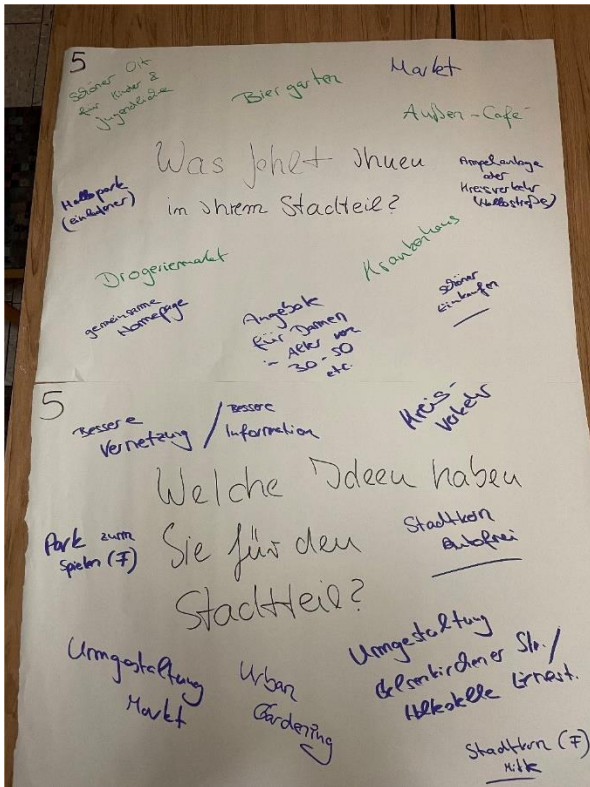 5
Schöner Ort
für Kinder &
Jugendliche
Biergarten
Markt
Außen-Café
Was fehlt Ihnen
in Ihrem Stadtteil?
(einladener)
Ampelanlage
oder
Kreisverkehr
Drogeriemarkt
Krankenhaus
gemeinsame
Homepage
Angebote
für Damen
Alter von
30-50
etc.
schöner
Einkaufen
5
Bessere
Vernetzung /
Bessere
Information
Kreis-
verkehr
Welche Ideen haben
Sie für den
Stadtteil?
Park zum
Spielen (7)
Stadtkern
Autofrei
Umgestaltung
Markt
Urban
Gardening
Umgestaltung
Gelsenkirchener Str. /
Haltestelle Ernest.
Stadtkern (7)
Mitte